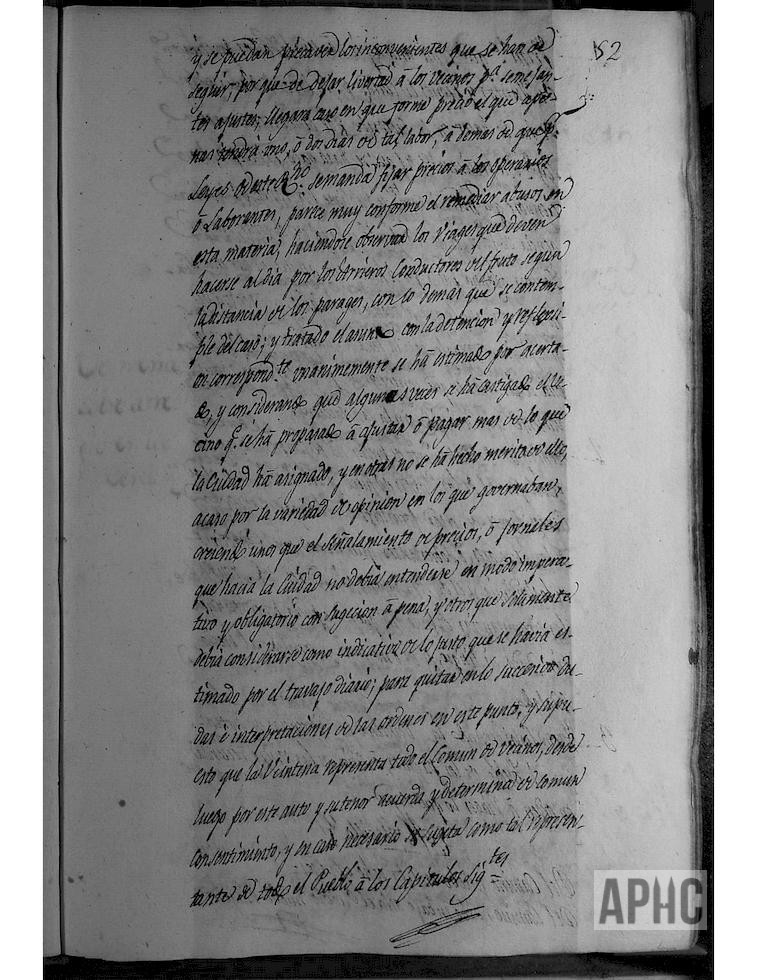 52
y se puedan precaver los inconvenientes que se han de
seguir, porque de dejar livertad à los vecinos p.ª semejan-
tes ajustes, llegara caso en que forme precio el que ape-
nas tendrà uno, ò dos dias de tal labor, à demas de que p.r
Leyes de este R.no se manda fijar precios à los operarios
ò Laborantes, parece muy conforme el remediar abusos en
esta materia, haciendose observar los Viages que deven
hacerse al dia por los Arrieros Conductores del fruto segun
la distancia de los parages, con lo demas que se contem-
ple del caso; y tratado el asunto con la detencion y reflexi-
on correspond.te unanimemente se hà estimado por acerta-
do, y considerando que algunas veces se hà castigado el ve-
cino q.e se hà propasado à ajustar ò pagar mas de lo que
la Ciudad hà asignado, y en otras no se hà hecho merito de ello,
acaso por la variedad de opinion en los que governaban,
creiendo unos que el señalamiento de precios, ò jornales
que hacia la Ciudad no debia entenderse en modo impera-
tivo y obligatorio con sugecion à pena, y otros que solamente
debia considerarse como indicativo de lo justo que se havia es-
timado por el travajo diario; para quitar en lo succesivo du-
das è interpretaciones de las ordenes en este punto, y supu-
esto que la Veintena representa todo el Comun de vecinos, desde
luego por este auto y su tenor acuerda y determina de comun
consentimiento, y en caso necesario se sugeta como tal represen-
tante de todo el Pueblo à los Capitulos sig.tes
APHC